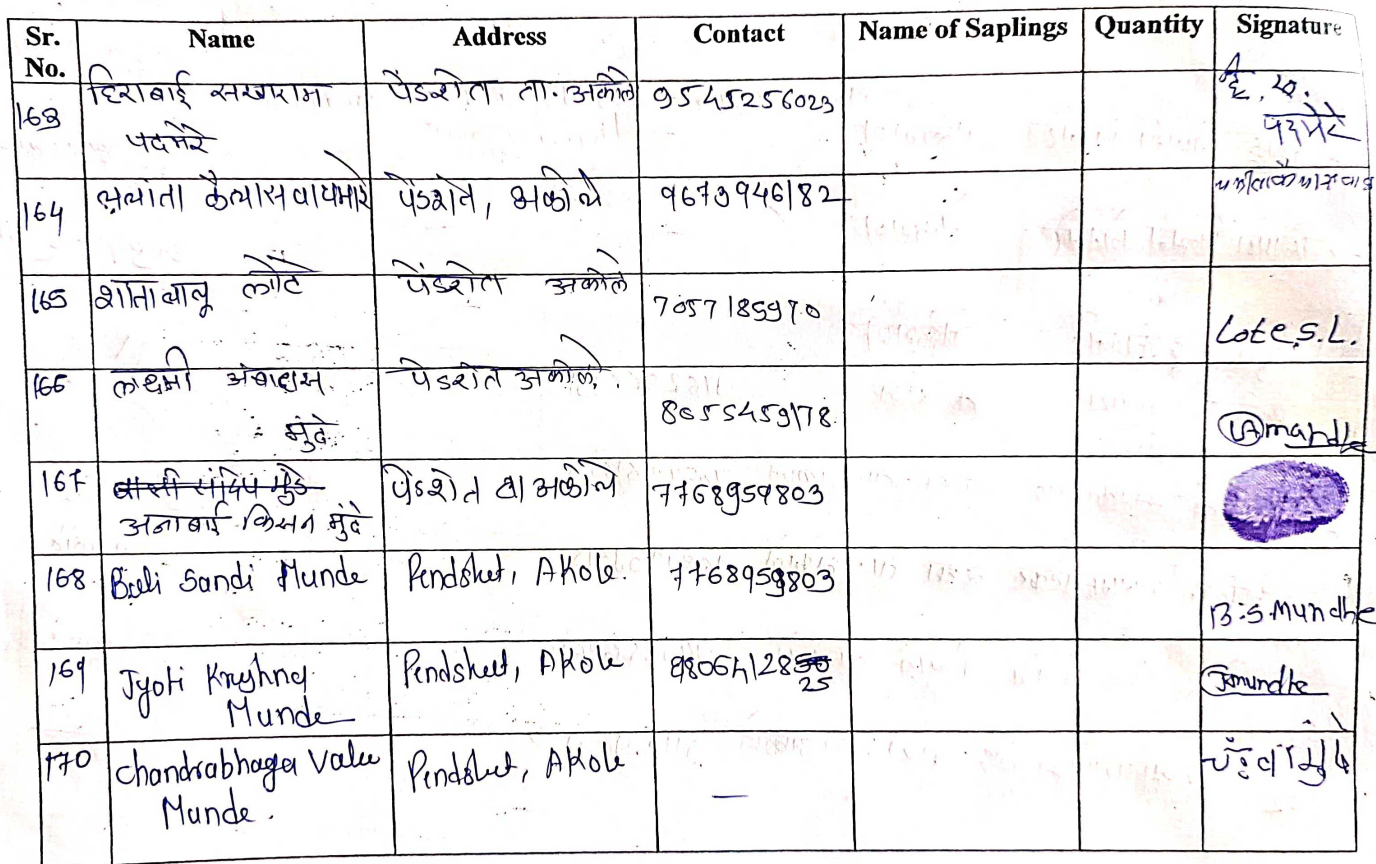 Sr. No. Name Address Contact Name of Saplings Quantity Signature
163 हिराबाई सखाराम पेंडशेत ता. अकोले 9545256023 हि. स.
पदमेरे पदमेरे
164 कैलास वायमारे पेंडशेत, अकोले 9673946182
165 शांताबाळू लोटे पेंडशेत अकोले 7057185970 Lote S.L.
166 लक्ष्मी अंबादास पेंडशेत अकोले. 8055459178
मुंढे
167 संदिप मुंढे पेंडशेत ता अकोले 7768959803
अनाबाई किसन मुंढे
168 Bali Sandi Munde Pendshet, Akole. 7768959803 B.S.Mundhe
169 Jyoti Krushna Pendshet, Akole Jmundhe
Munde
170 Chandrabhaga Valu Pendshet, Akole —
Munde.